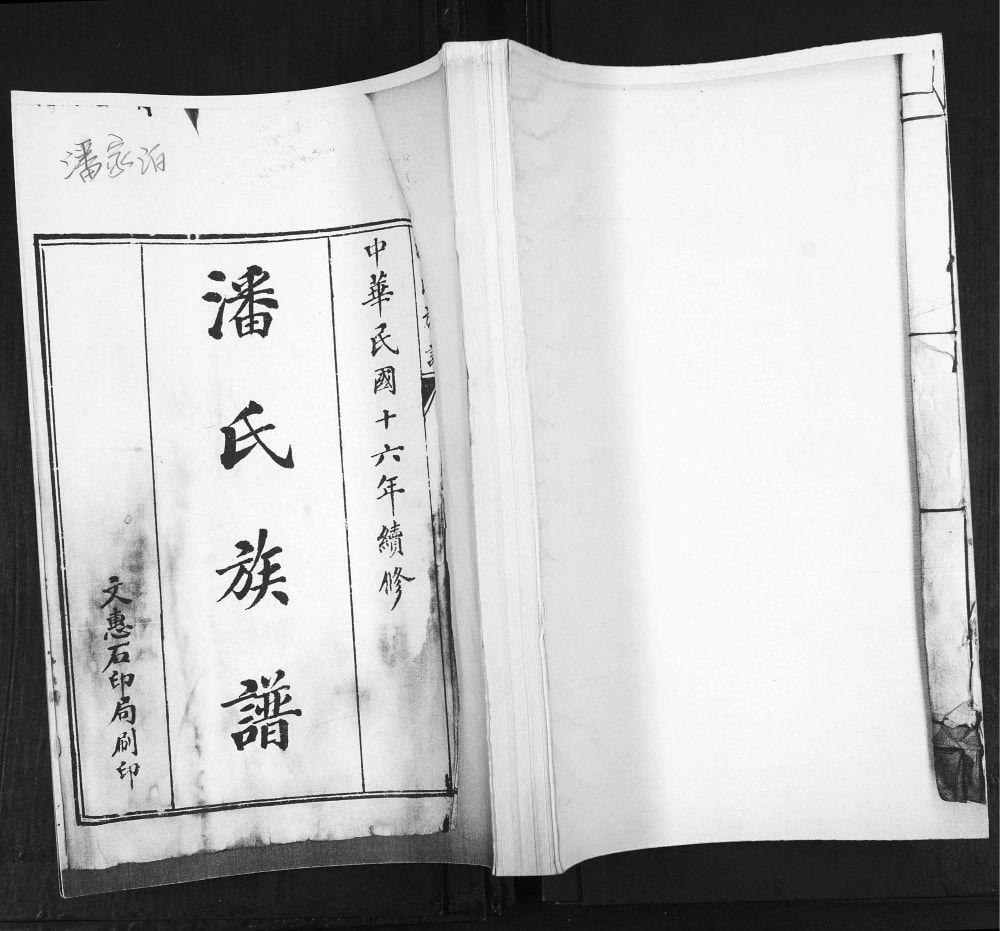 潘家泊
中華民國十六年續修
潘氏族譜
文惠石印局刷印